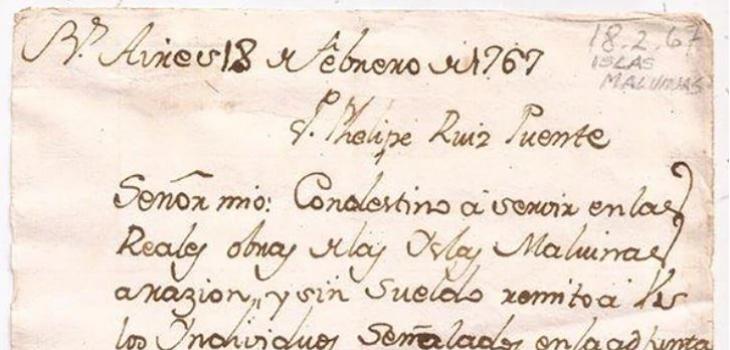 Bs Aires 18 de Febrero de 1767
18.2.67
ISLAS
MALVINAS
Dn Phelipe Ruiz Puente
Señor mio: Con destino a servir en las
Reales obras de las Yslas Malvinas
a razion, y sin sueldo remito a Vs
los Individuos Señalados en la adjunta